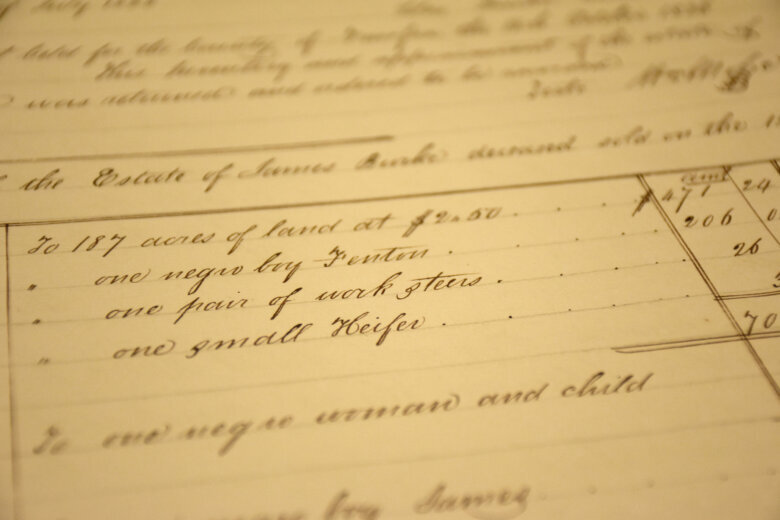 July
held for the County of
This Inventory and appraisement of the
was returned and ordered to be recorded
the Estate of James Burke deceased sold on the
amt
To 187 acres of land at $2.50 . . . . $ 471 24
" one negro boy Fenton . . . . 206 0
" one pair of work steers . . . . 26
" one small Heifer . . . .
70
To one negro woman and child
boy James